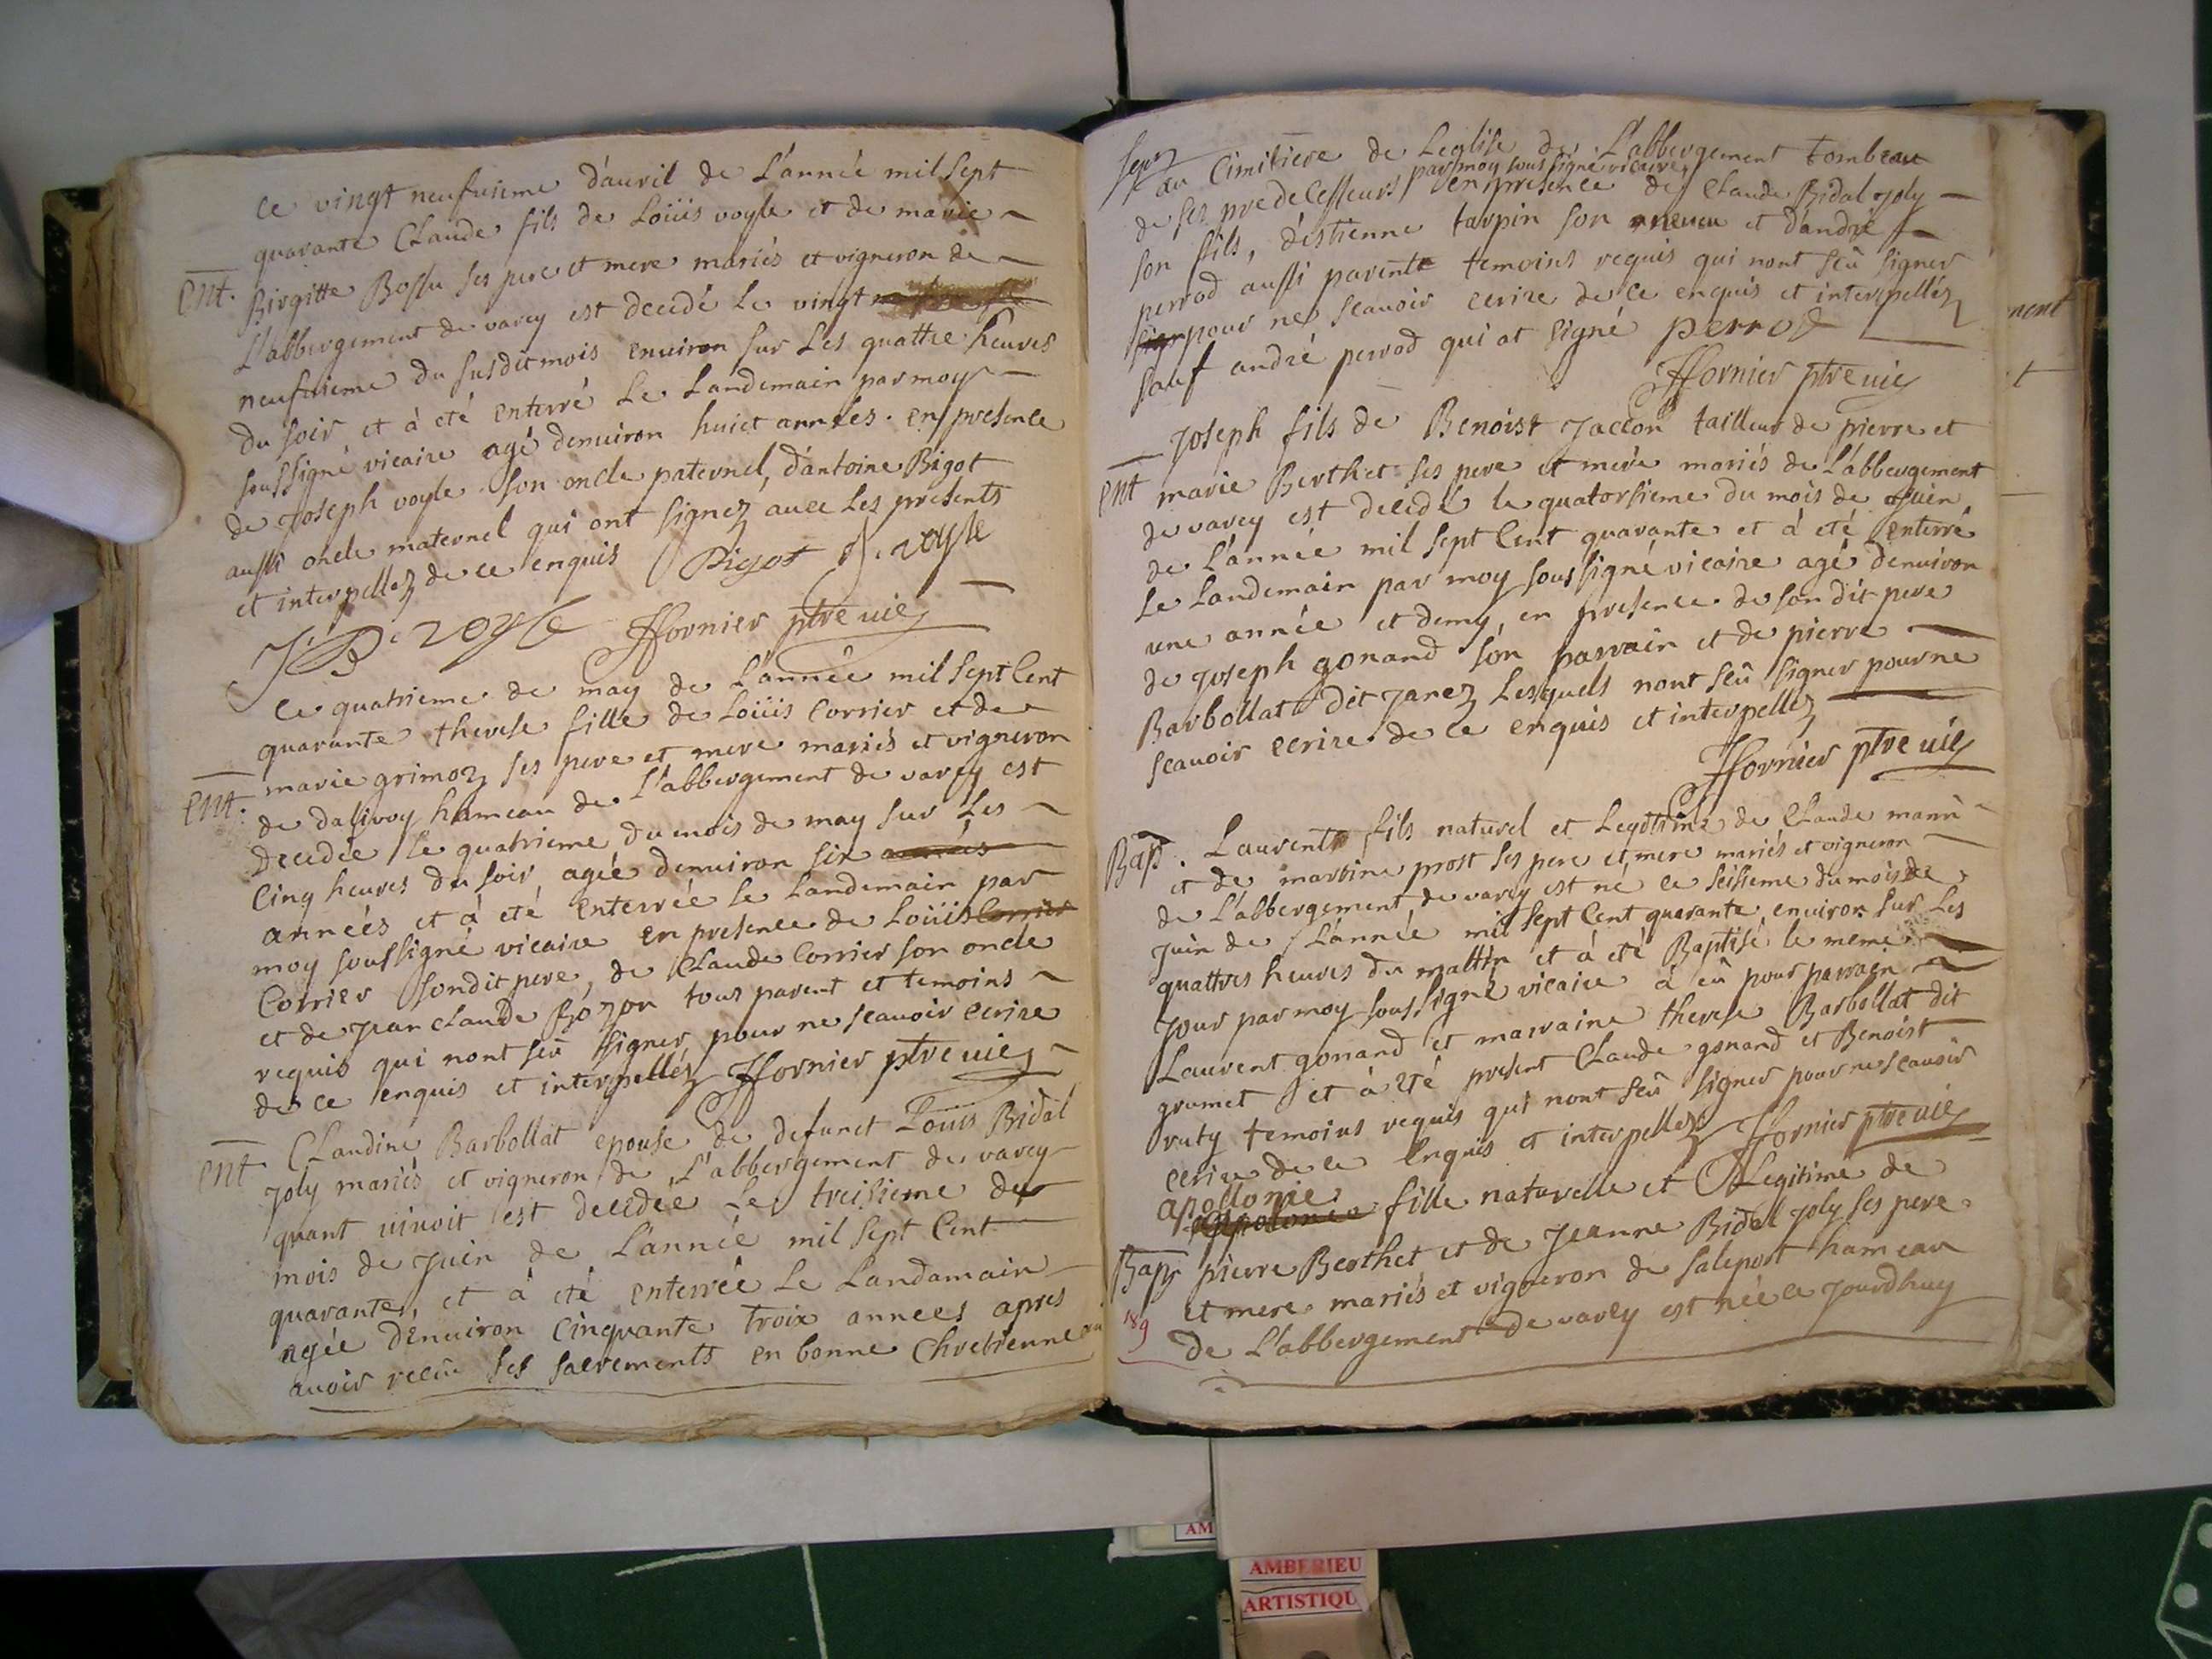 ce vingt neufuieme d'auril de L'année mil sept
quarante Claude fils de Loüis voyle et de marie
ent. Birgitte Bossu ses pere et mere mariés et vigneron de
L'abbergement de varey est decedé le vingt
neufuieme du susdit mois enuiron sur Les quattre heures
du soir et à eté enterré Le Landemain par moy
soussigné vicaire agé denuiron huict années. en presence
de Joseph voyle son oncle paternel, d'antoine Bigot
aussi oncle maternel qui ont signez auec Les presents
et interpellez de ce enquis Bigot J. voyle
J B. voyle ffornier ptre vic
ce quatrieme de may de L'année mil sept Cent
quarante therese fille de Loüis Corrier et de
marie grimoz ses pere et mere mariés et vigneron
ent. de dalivoy hameau de L'abbergement de varey est
decedée le quatrieme du mois de may sur Les
Cinq heures du soir agée denuiron six années
années et à eté enterrée le Landemain par
moy soussigné vicaire en presence de Loüis Corrier
Corrier sondit pere, de Claude Corrier son oncle
et de Jean Claude Bozon tous parent et temoins
requis qui nont seû signer pour ne scauoir ecrire
de ce enquis et interpellez ffornier ptre vic
ent Claudine Barbollat epouse de defunct Louis Bidal
Joly mariés et vigneron de L'abbergement de varey
quant viuoit est decedée Le treisieme du
mois de Juin de L'année mil sept Cent
quarante, et à eté enterrée Le Landamain
agée d'enuiron Cinquante troix annees apres
auoir receu ses sacrements en bonne Chretienne au
sepr au Cimitiere de Leglise de L'abbergement tombeau
par moy sous signé vicaire
de ses predecesseurs en presence de Claude Bidal Joly
son fils, d'estienne tarpin son neueu et d'andré
perrod aussi parente temoins requis qui nont seû signer
sign pour ne scauoir ecrire de ce enquis et interpellez
sauf andré perrod qui at signé perrod
ffornier ptre vic
Joseph fils de Benoist Jaccon tailleur de pierre et
ent marie Berthet ses pere et mere mariés de L'abbergement
de varey est decedé le quatorsieme du mois de Juin
de L'année mil sept Cent quarante et à eté enterré
Le Landemain par moy soussigné vicaire agé denuiron
une année et demy, en presence de son dit pere
de Joseph gonand son parrain et de pierre
Barbollat dit Janez Lesquels nont seû signer pour ne
scauoir ecrire de ce enquis et interpellez
ffornier ptre vic
Bap. Laurent fils naturel et Legitime de Claude mani
et de martine prost ses pere et mere mariés et vigneron
de L'abbergement de varey est né ce seisieme du mois de
Juin de L'année mil sept Cent quarante enuiron sur Les
quattres heures du mattin et à eté Baptisé le meme
Jour par moy soussigné vicaire à eû pour parrain
Laurent gonand et marraine therese Barbollat dit
gromet et à eté present Claude gonand et Benoist
ruty temoins requis qui nont seû signer pour ne scauoir
ecrire de ce enquis et interpellez ffornier ptre vic
apollonie
appolonie fille naturelle et Legitime de
Bap pierre Berthet et de Jeanne Bidal Joly ses pere
et mere mariés et vigneron de saleport hameau
189 de L'abbergement de varey est née ce Jourdhuy
nent
t
AM
AMBERIEU
ARTISTIQU